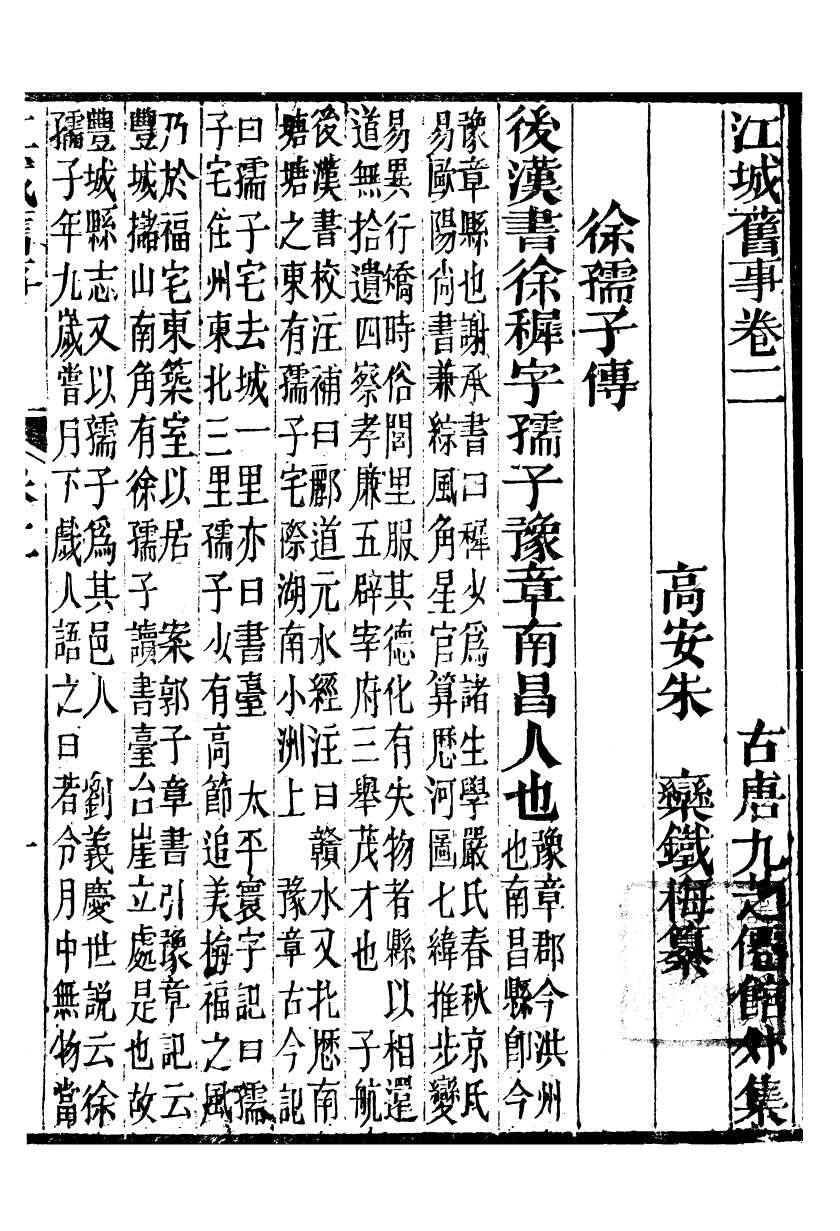 江城舊事卷二
古唐九芝僊館外集
高安朱　欒鐵梅纂
徐孺子傳
後漢書徐穉字孺子豫章南昌人也
豫章郡今洪州
也南昌縣卽今
豫章縣也謝承書曰穉少爲諸生學嚴氏春秋京氏
易歐陽尙書兼綜風角星官算歷河圖七緯推步變
易異行矯時俗閭里服其德化有失物者縣以相還
道無拾遺四察孝廉五辟宰府三舉茂才也　子航
後漢書校注補曰酈道元水經注曰贛水又北歷南
塘塘之東有孺子宅際湖南小洲上　豫章古今記
曰孺子宅去城一里亦曰書臺　太平寰宇記曰孺
子宅住州東北三里孺子少有高節追美梅福之風
乃於福宅東築室以居　案郭子章書引豫章記云
豐城櫧山南角有徐孺子讀書臺台崖立處是也故
豐城縣志又以孺子爲其邑人　劉義慶世説云徐
孺子年九歲嘗月下戲人語之曰若令月中無物當